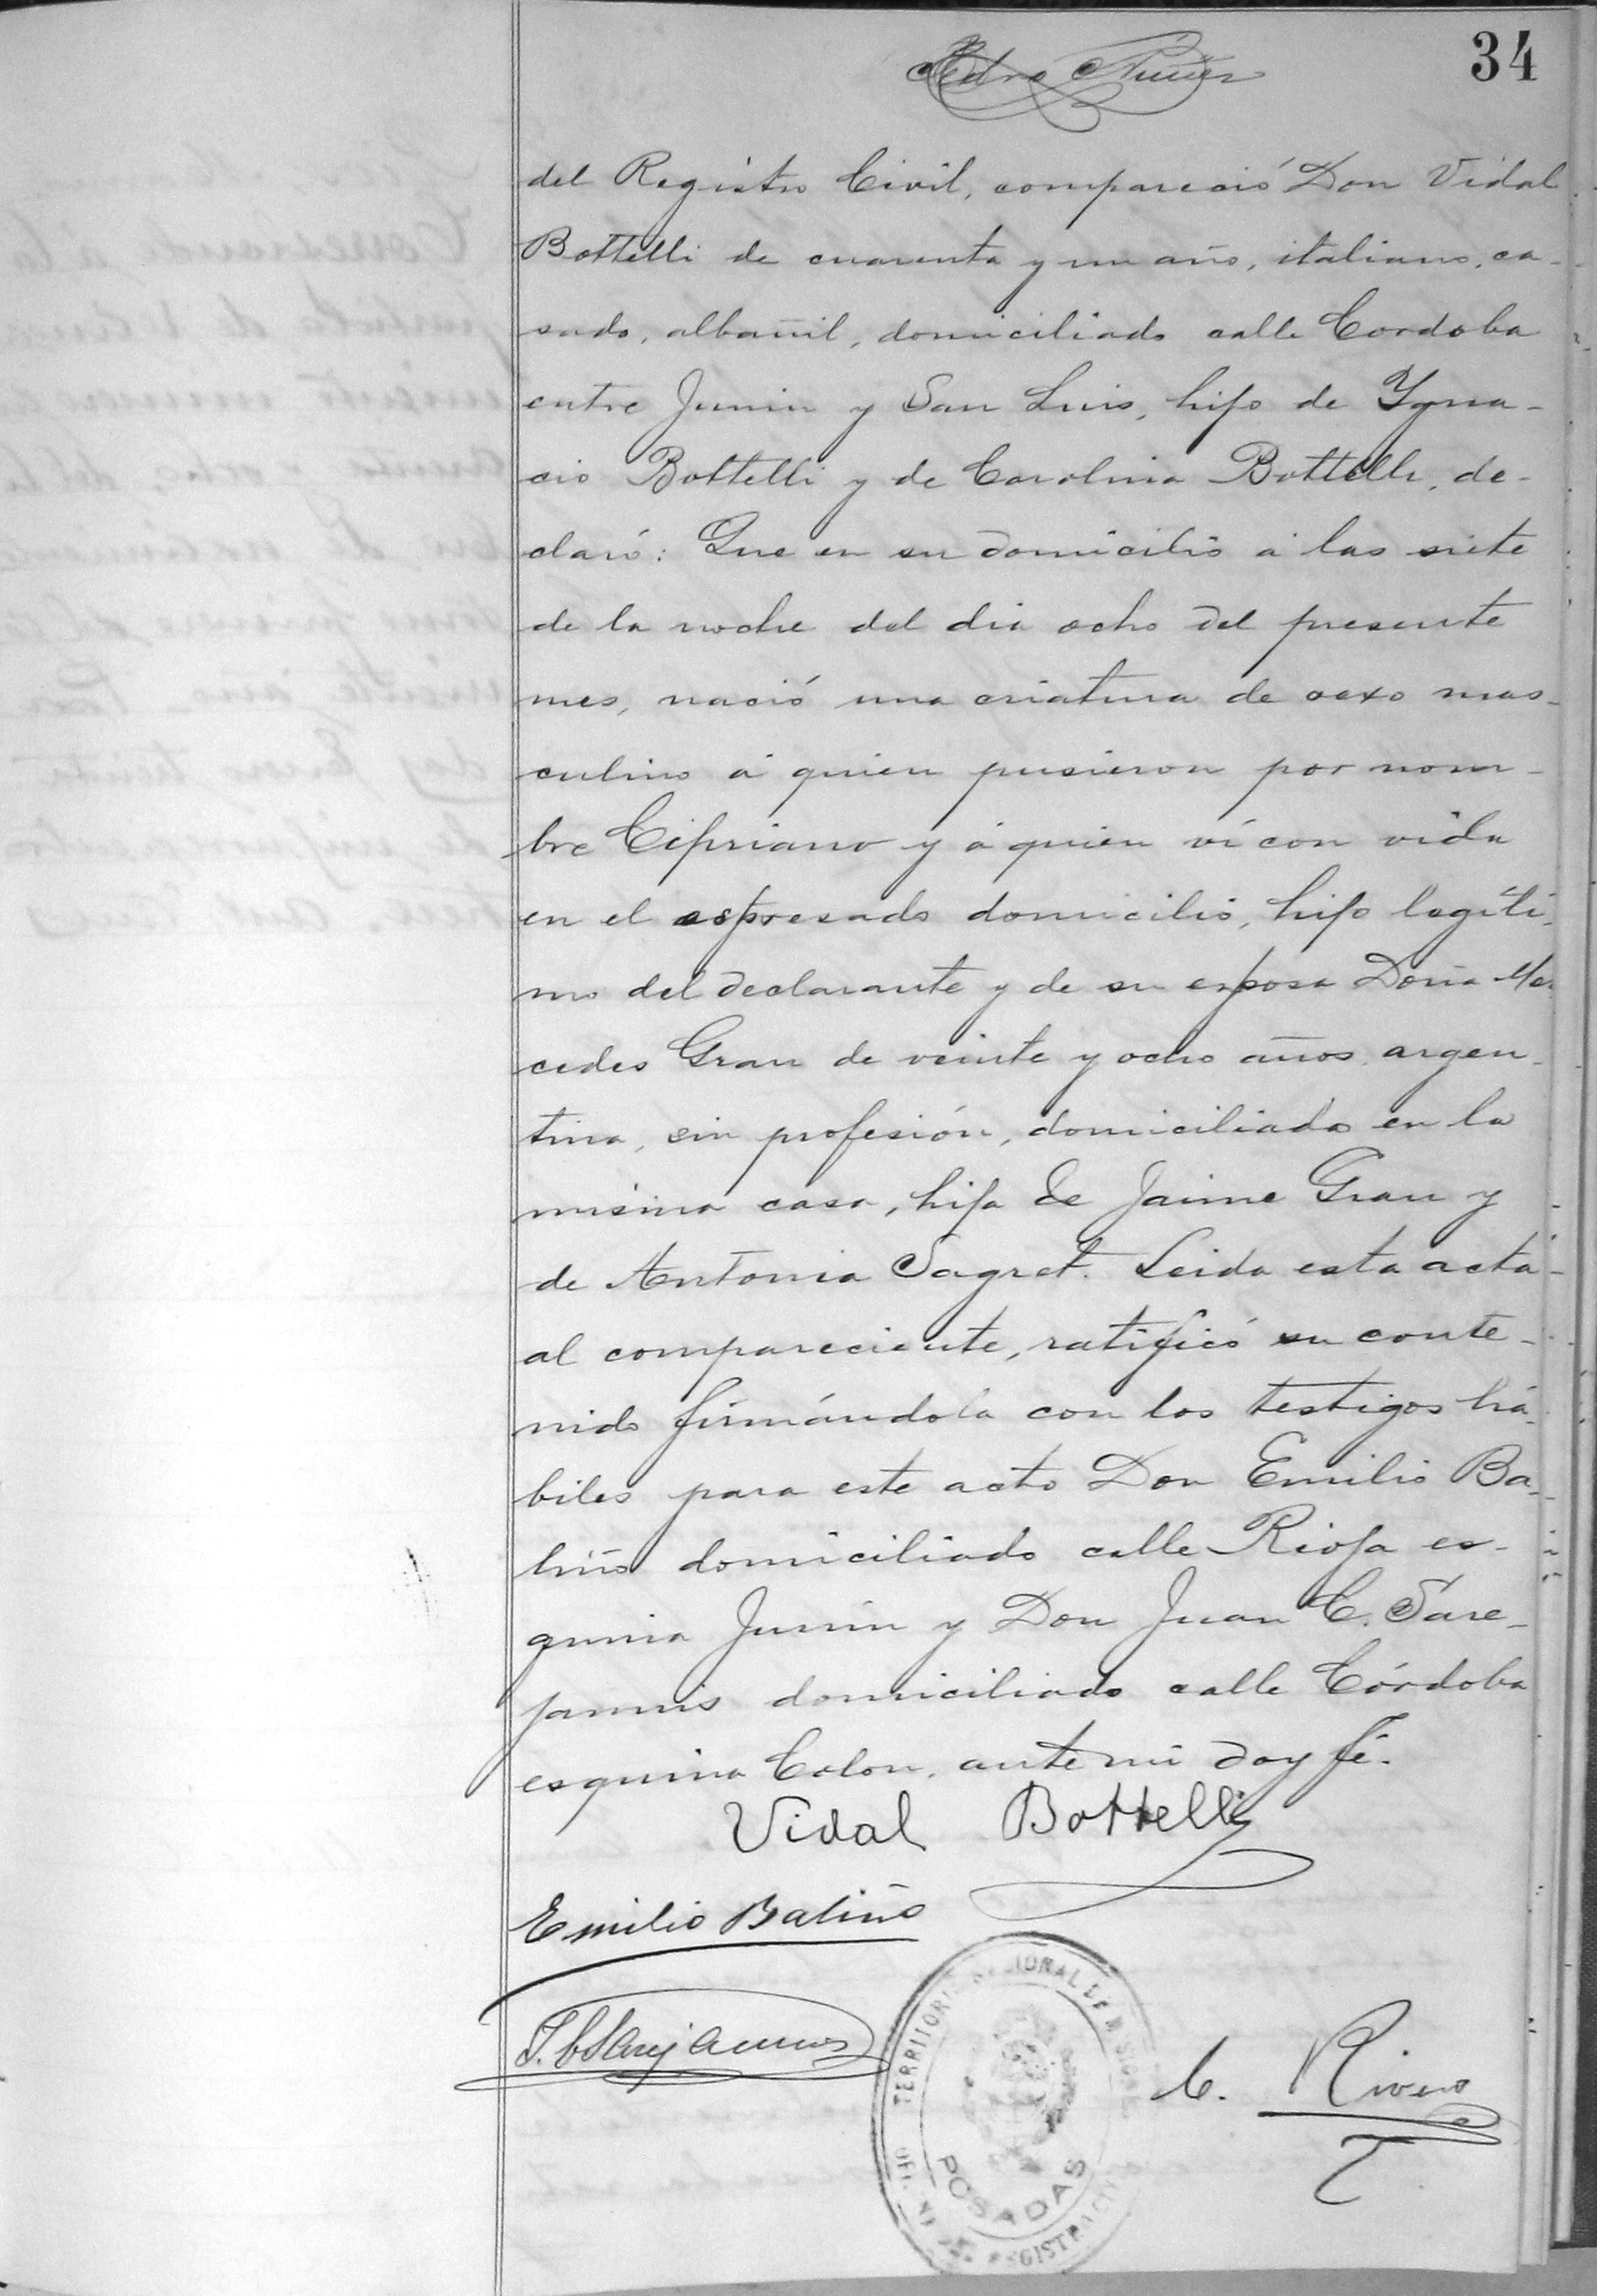 34
Pedro Nuñez
del Registro Civil, compareció Don Vidal
Bottelli de cuarenta y un año, italiano, ca-
sado, albañil, domiciliado calle Cordoba
entre Junin y San Luis, hijo de Ygna-
cio Bottelli y de Carolina Bottelli, de-
claró: Que en su domicilio á las siete
de la noche del dia ocho del presente
mes, nació una criatura de sexo mas-
culino á quien pusieron por nom-
bre Cipriano y á quien ví con vida
en el espresado domicilio, hijo legíti-
mo del declarante y de su esposa Doña Mer-
cedes Grau de veinte y ocho años, argen-
tina, sin profesión, domiciliada en la
misma casa, hija de Jaime Grau y
de Antonia Sagret. Leida esta acta
al compareciente, ratificó su conte-
nido firmándola con los testigos há-
biles para este acto Don Emilio Ba-
liño domiciliado calle Rioja es-
quina Junin y Don Juan C.
domiciliado calle Córdoba
esquina Colon, ante mi doy fé.
Vidal Bottelli
Emilio Baliño
C. Rivero
TERRITORIO NACIONAL DE MISIONES
POSADAS